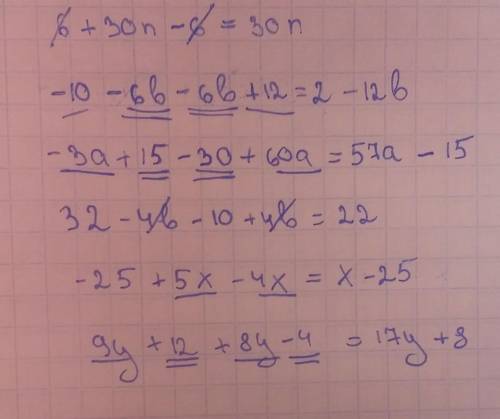 6 + 30n - 6 = 30n
-10 - 6b - 6b + 12 = 2 - 12b
-3a + 15 - 30 + 60a = 57a - 15
32 - 4b - 10 + 4b = 22
-25 + 5x - 4x = x - 25
9y + 12 + 8y - 4 = 17y + 8